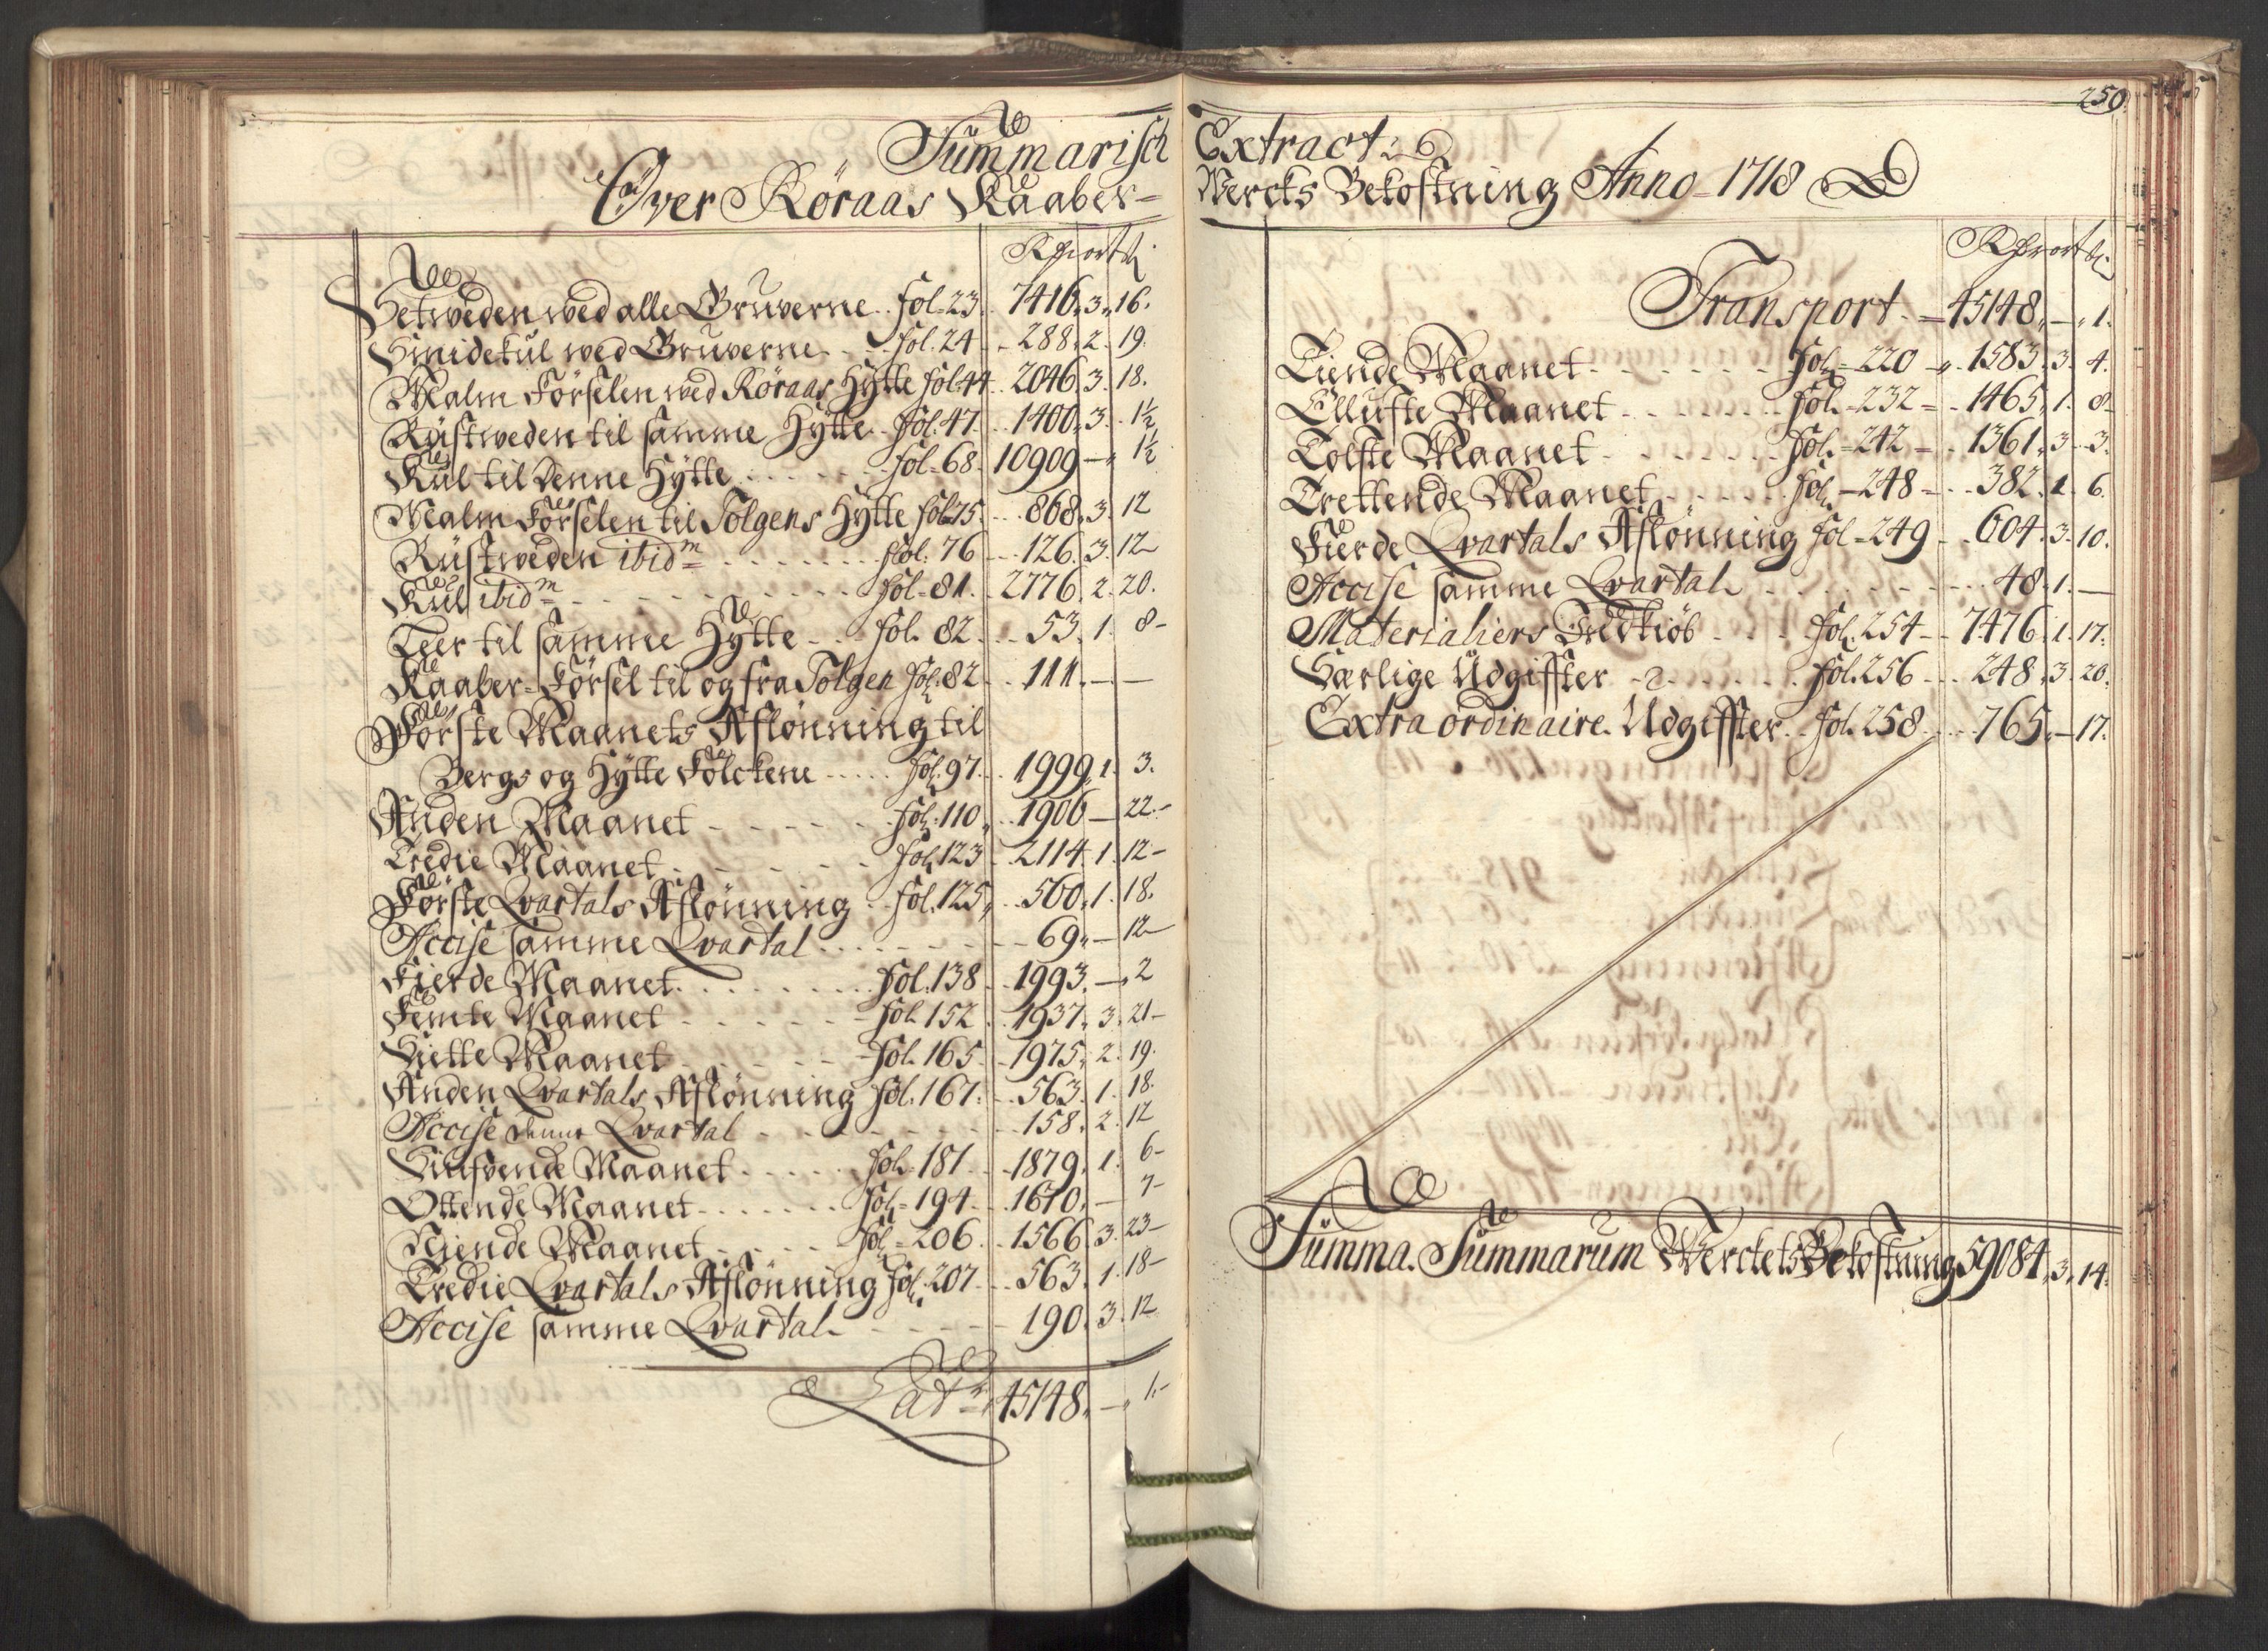 Summarisch Extract
Över Röraas Kaaber-Wercks Bekostning Anno 1718
Rdr ort ß
Setweden wed alle Gruverne fol. 23 7416. 3. 16.
Smidekul wed Gruverne fol. 24 288. 2. 19.
Malm Förselen wed Röraas Hytte fol. 44 2046. 3. 18.
Rüstweden til samme Hytte fol. 47. 1400. 3. 1½
Kul til denne Hytte fol. 68. 10909 — 1½
Malm Förselen til Tolgens Hytte fol. 75. 868. 3. 12
Rüstweden ibidm fol. 76 126. 3. 12
Kul ibidm fol. 81. 2776. 2. 20.
Leer til samme Hytte fol. 82 53. 1. 8
Kaaber-Försel til og fra Tolgen fol. 82 111. — —
Förste Maanets Aflönning til
Bergs og Hytte Folckene fol. 97. 1999. 1. 3.
Anden Maanet fol. 110. 1906 — 22.
Tredie Maanet fol. 123 2114. 1. 12
Förste Qvartals Aflönning fol. 125, 560. 1. 18.
Accise samme Qvartal 69. — 12
Fierde Maanet fol. 138 1993. — 2
Femte Maanet fol. 152 1937. 3. 21
Siette Maanet fol. 165 1975. 2. 19.
Anden Qvartals Aflönning fol. 167. 563. 1. 18.
Accise denne Qvartal 158. 2. 12
Siufvende Maanet fol. 181 1879. 1. 6
Ottende Maanet fol. 194 1670. — 7
Niende Maanet fol. 206 1566. 3. 23
Tredie Qvartals Aflönning fol. 207 563. 1. 18
Accise samme Qvartal 190. 3. 12
Lats 45148. — 1.
250.
Rdr ort ß
Transport 45148. — 1.
Tiende Maanet fol. 220 1583. 3. 4.
Ellufte Maanet fol. 232 1465. 1. 8
Tolfte Maanet fol. 242 1361. 3. 3.
Trettende Maanet fol. 248 382. 1. 6.
Fierde Qvartals Aflönning fol. 249 604. 3. 10.
Accise samme Qvartal 48. 1. —
Materialiers Indkiöb fol. 254 7476. 1. 17.
Særlige Udgiffter fol. 256 248. 3. 20.
Extra ordinaire Udgiffter fol. 258 765. — 17.
Summa Summarum Werckets Bekostning 59084. 3. 14.